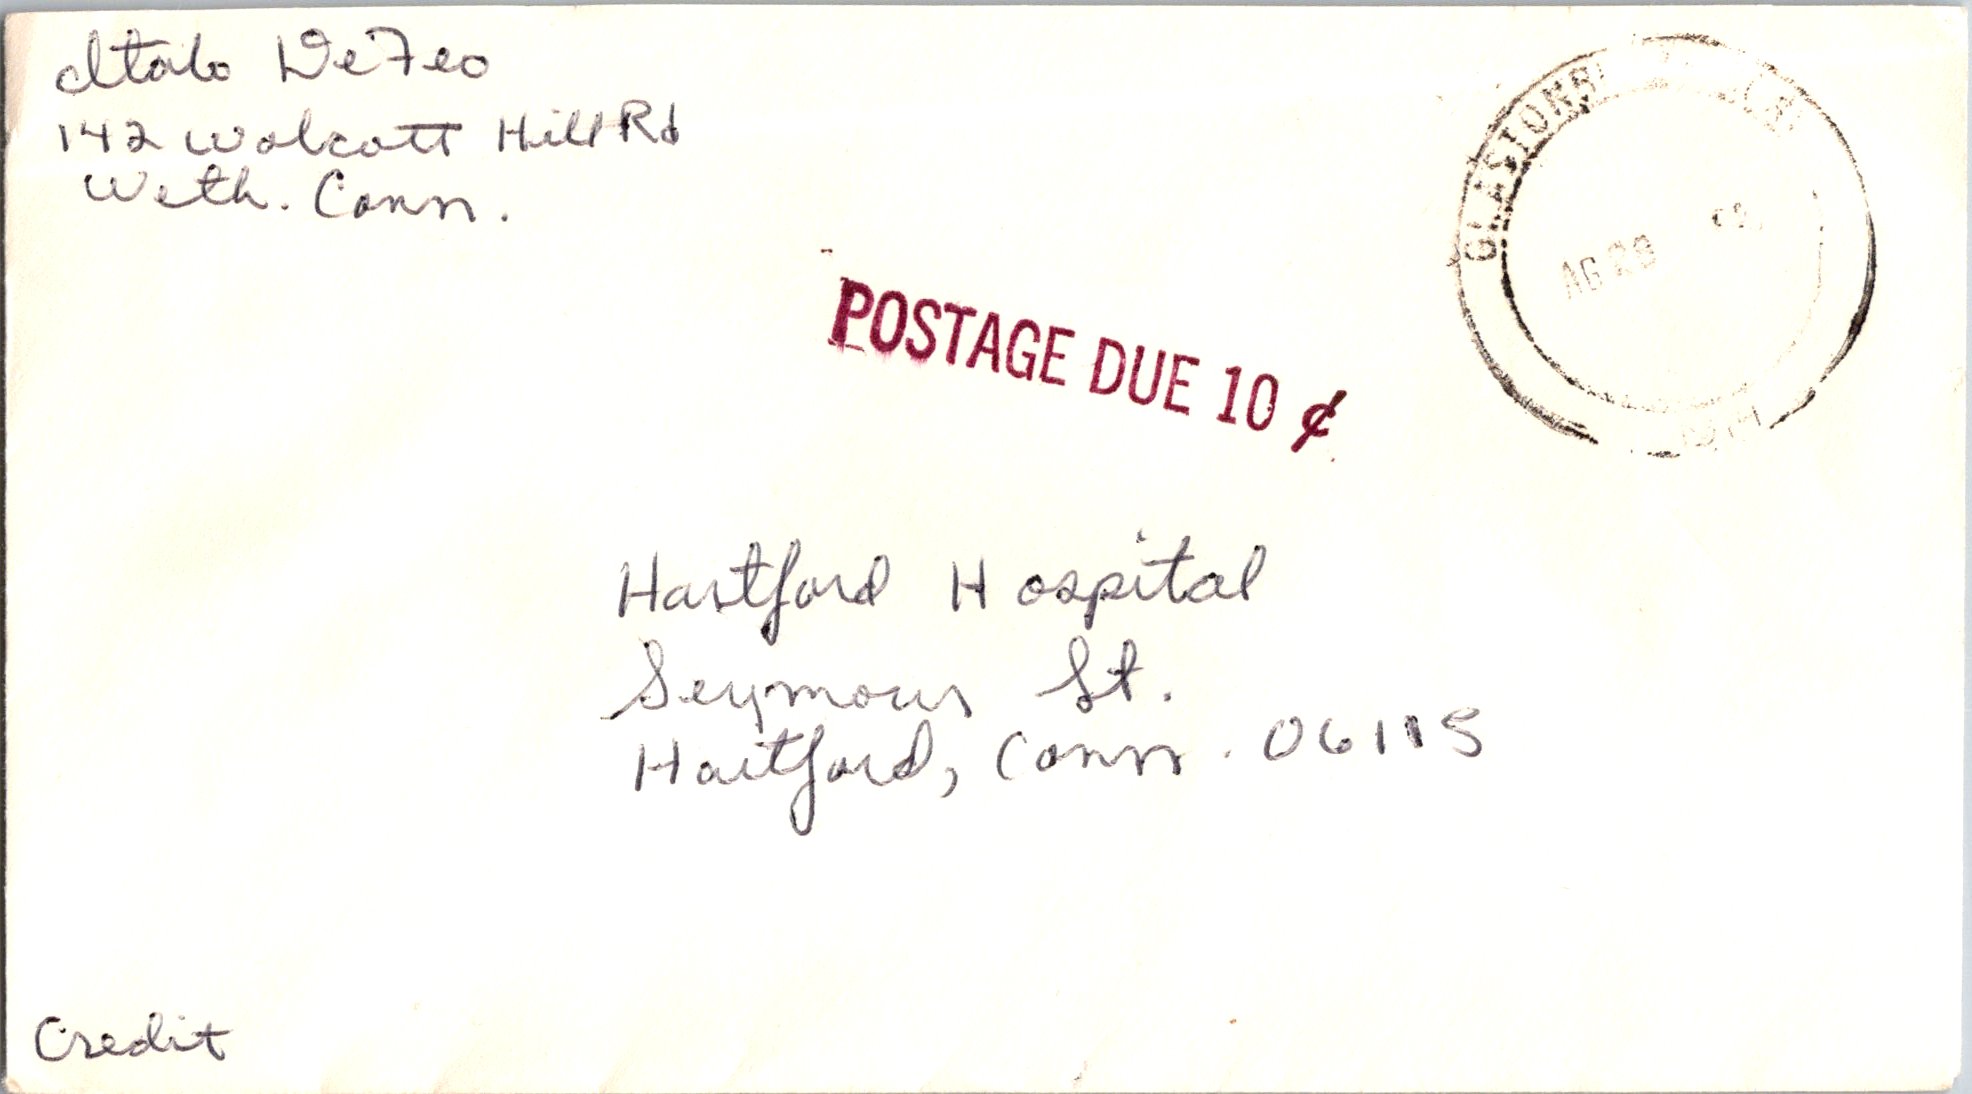 Italo DeFeo
142 Wolcott Hill Rd
Weth. Conn.
GLASTONB
AG 29
POSTAGE DUE 10 ¢
Hartford Hospital
Seymour St.
Hartford, Conn. 06115
Credit